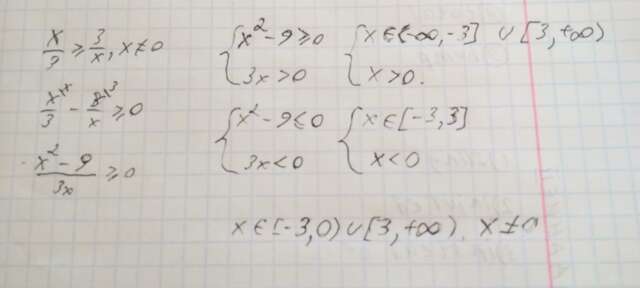 x/3 ≥ 3/x, x≠0
x^x/3 - 8^3/x ≥ 0
x² - 9/3x ≥ 0
{x² - 9 ≥ 0
3x > 0
{x ∈ (-∞, -3] ∪ [3, +∞)
x > 0.
{x² - 9 ≤ 0
3x < 0
{x ∈ [-3, 3]
x < 0
x ∈ [-3, 0) ∪ [3, +∞). x ≠ 0